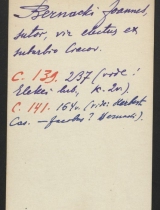 Bernacki Joannes,
sutor, vir electus ex
suburbio Cracov.
C. 139. 237 (vide:
Elekci lub, k. 2v.)
C. 141. 164v. (vide: Herbert
Cas. — Jacobus? Bernacki).